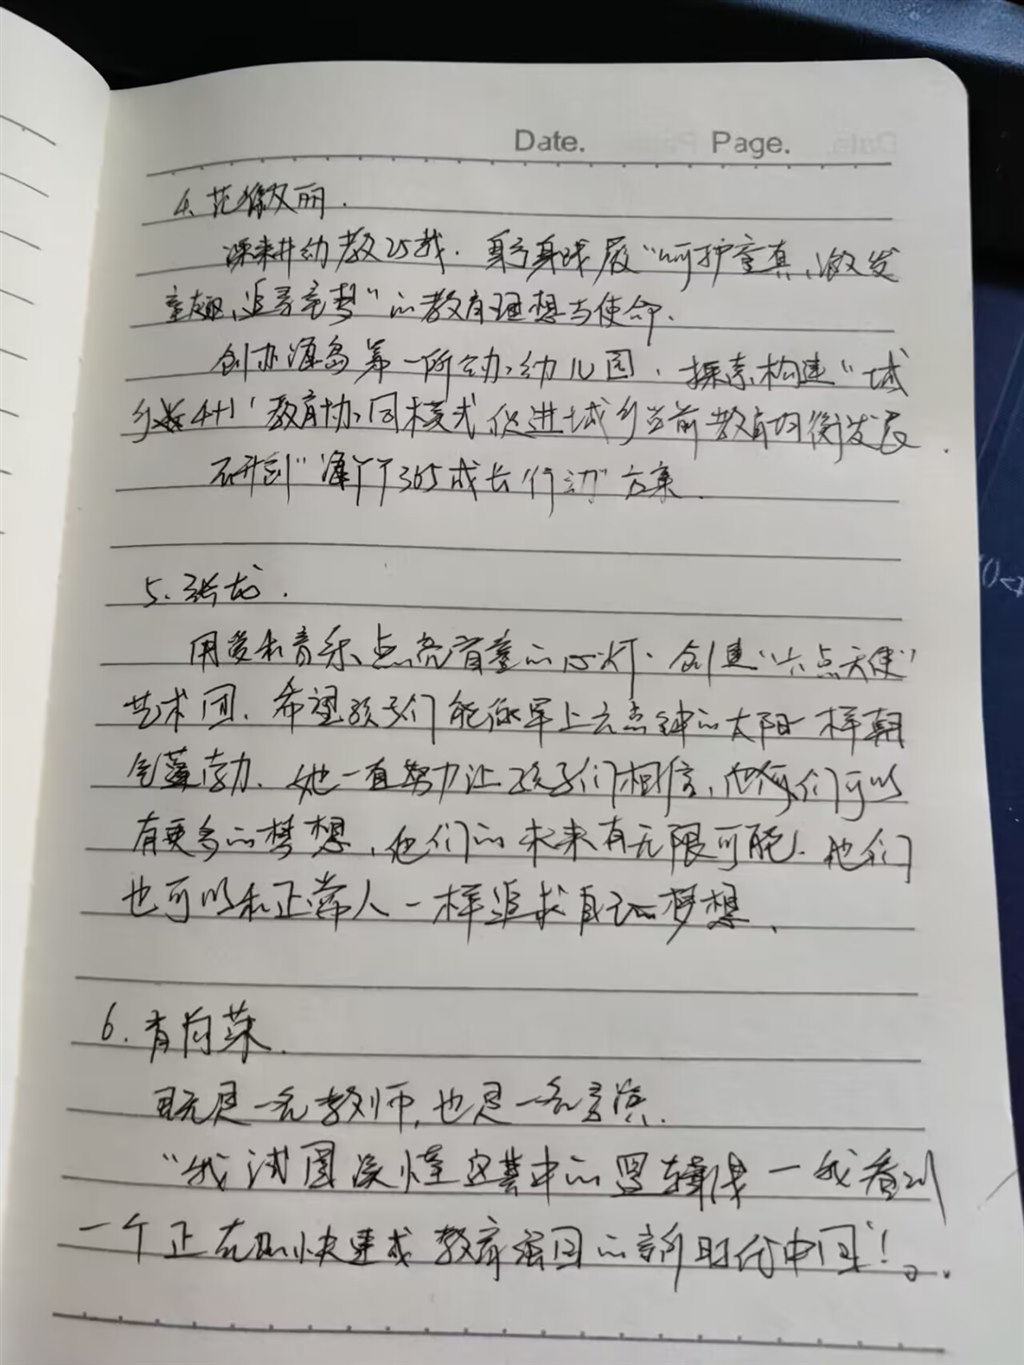 Date. Page.
4. 范徽丽.
深耕幼教25载. 躬身践履"呵护童真、激发
童趣、追寻童梦"的教育理想与使命.
创办海岛第一所公办幼儿园. 探索构建"城
乡4+1"教育协同模式促进城乡学前教育均衡发展.
研创"海丫丫365成长行动"方案.
5. 张龙.
用爱和音乐点亮盲童的心灯. 创建"六点天使"
艺术团. 希望孩子们能像早上六点钟的太阳一样朝
气蓬勃. 她一直努力让孩子们相信, 他们可以
有更多的梦想, 他们的未来有无限可能. 他们
也可以和正常人一样追求自己的梦想.
6. 肖向荣.
既是一名教师, 也是一名导演.
"我试图读懂这其中的逻辑 — 我看到
一个正在加快建成教育强国的新时代中国"!